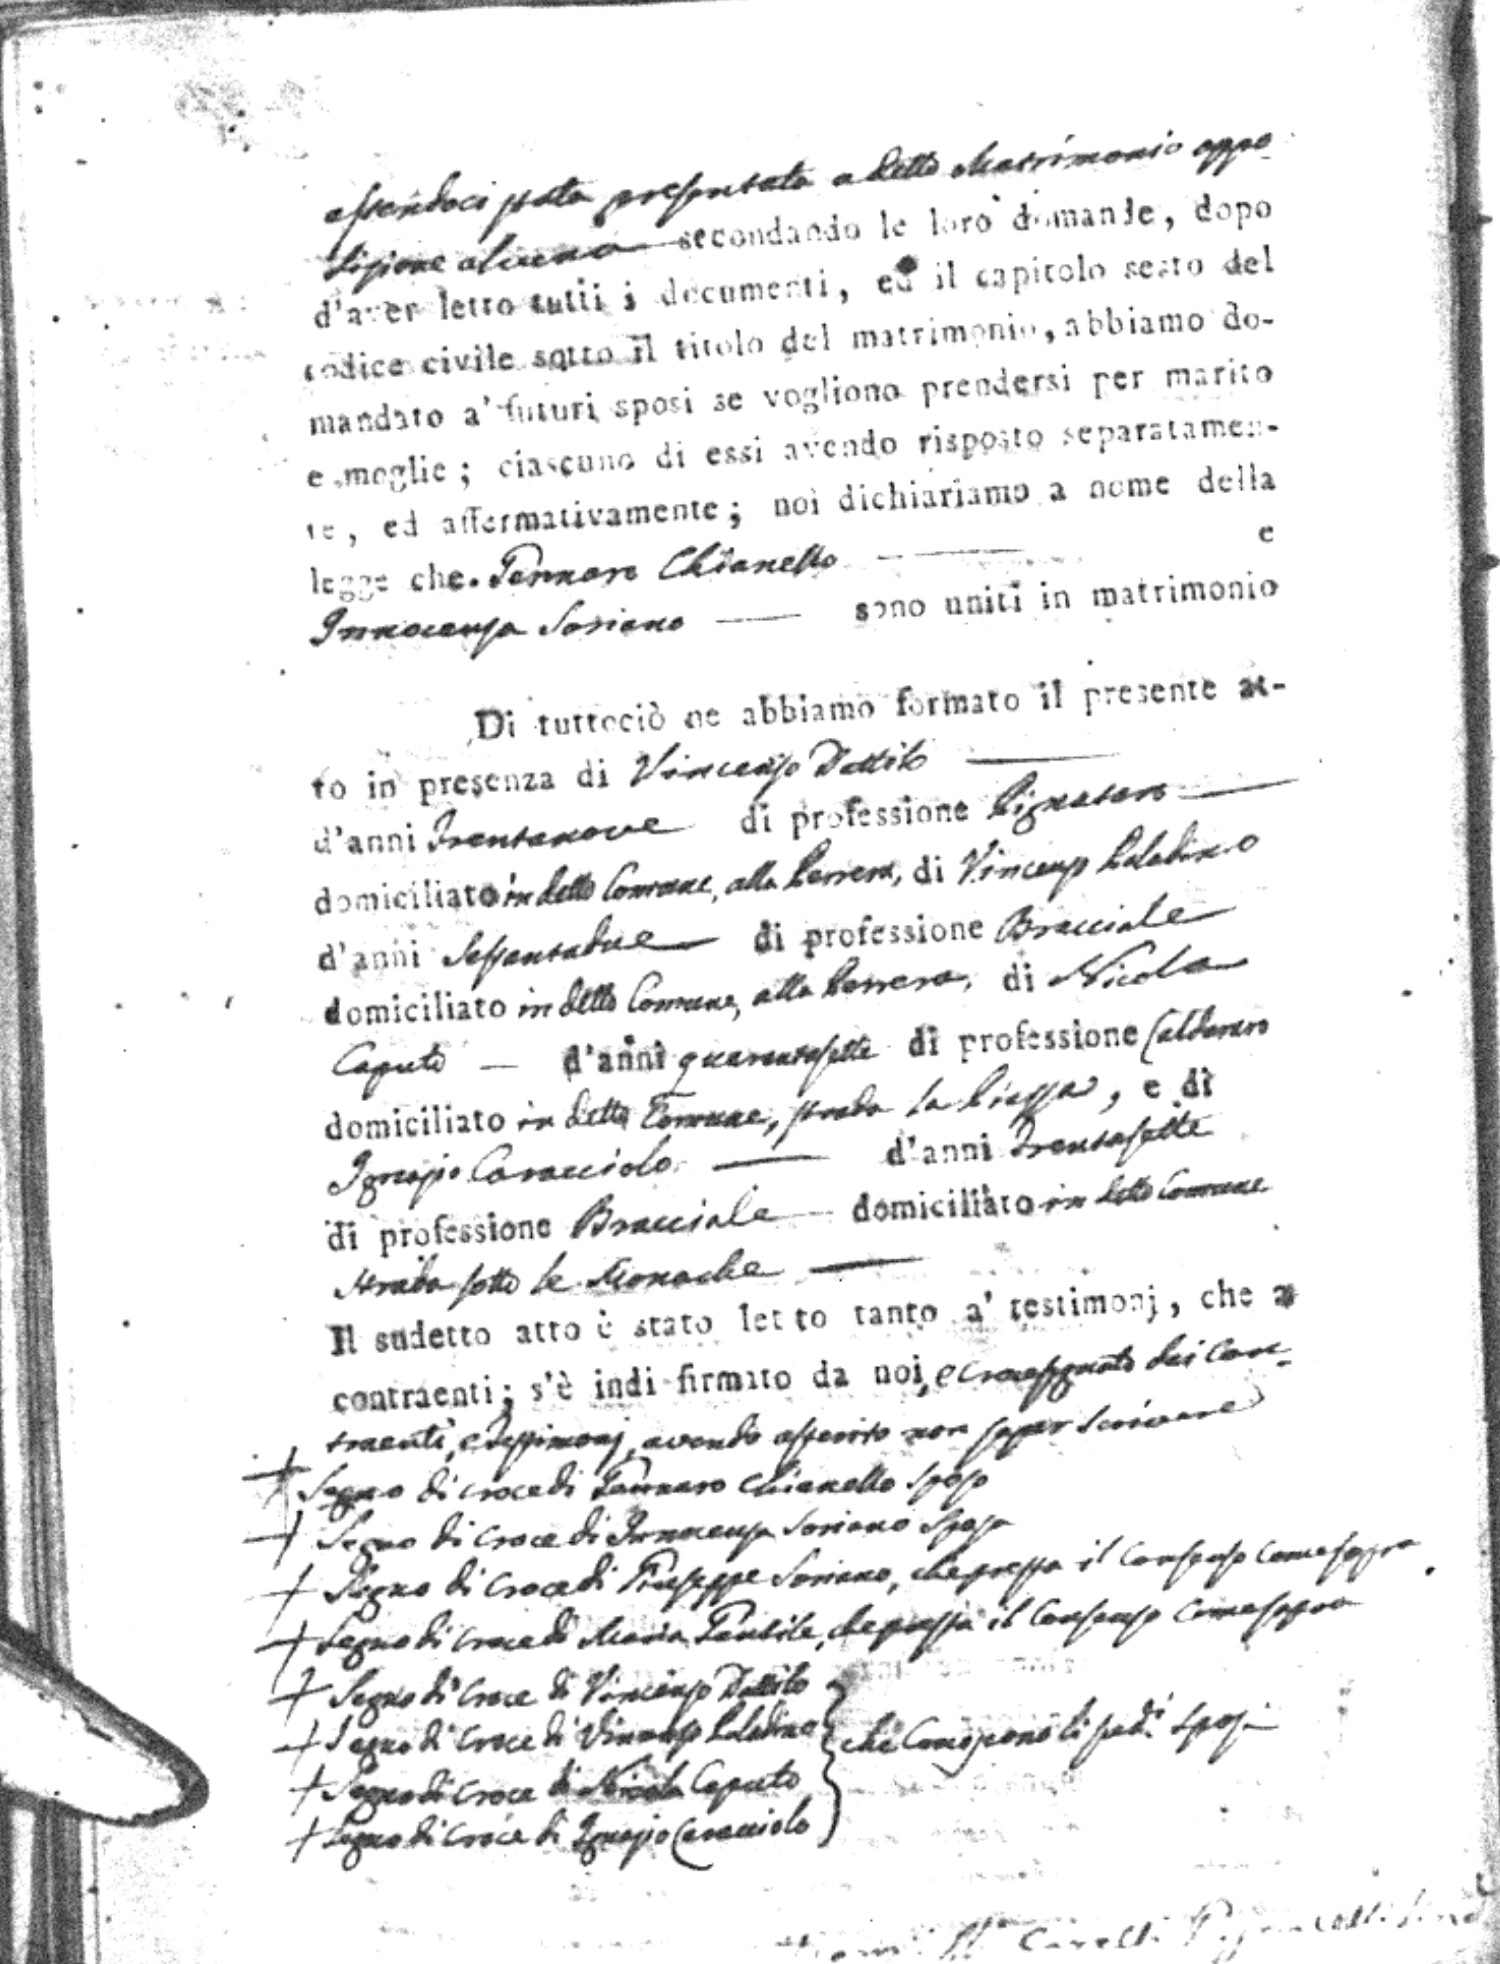 essendoci stata presentata a detto Matrimonio oppo-
sizione alcuna secondando le loro domande, dopo
d'aver letto tutti i documenti, ed il capitolo sesto del
codice civile sotto il titolo del matrimonio, abbiamo do-
mandato a' futuri sposi se vogliono prendersi per marito
e moglie; ciascuno di essi avendo risposto separatamen-
te, ed affermativamente; noi dichiariamo a nome della
legge che Gennaro Chianello e
Innocenza Soriano sono uniti in matrimonio
Di tuttociò ne abbiamo formato il presente at-
to in presenza di Vincenzo Dattilo
d'anni Trentanove di professione Pignataro
domiciliato in detto Comune, alla Perrera, di Vincenzo Paladino
d'anni Sessantadue di professione Bracciale
domiciliato in detto Comune, alla Perrera, di Nicola
Caputo d'anni quarantasette di professione Caldararo
domiciliato in detto Comune, strada la Piazza, e di
Ignazio Caracciolo d'anni Trentasette
di professione Bracciale domiciliato in detto Comune
strada sotto le Monache
Il sudetto atto è stato letto tanto a' testimonj, che a
contraenti; s'è indi firmato da noi, e crocesegnato dai Con-
traenti, e Testimonj, avendo asserito non saper scrivere
+ Segno di croce di Gennaro Chianello sposo
+ Segno di Croce di Innocenza Soriano Sposa
+ Segno di Croce di Giuseppe Soriano, che pressa il Consenso come sopra
+ Segno di Croce di Maria Gentile, che pressa il Consenso come sopra
+ Segno di Croce di Vincenzo Dattilo
+ Segno di Croce di Vincenzo Paladino che Conoscono li sud.i Sposi
+ Segno di Croce di Nicola Caputo
+ Segno di Croce di Ignazio Caracciolo